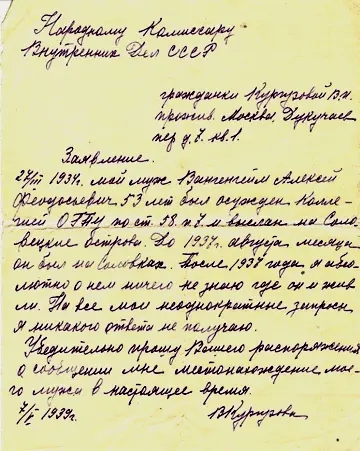 Народному Комиссару
Внутренних Дел СССР
гражданки Кургузовой В.И.
прожив. Москва Дукучаев
пер д. 7. кв. 1.
Заявление.
27/III 1934г. мой муж Вангенгейм Алексей
Феодосьевич 53 лет был осужден Колле-
гией ОГПУ по ст. 58. п. 7 и выслан на Соло-
вецкие острова. До 1937г. августа месяца
он был на Соловках. После 1937 года я абсо-
лютно о нем ничего не знаю где он и жив
ли. На все мои неоднократные запросы
я никакого ответа не получаю.
Убедительно прошу Вашего распоряжения
о сообщении мне местонахождение мое-
го мужа в настоящее время.
7/V 1939г. ВКургузова